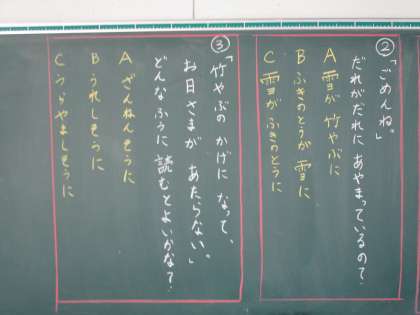 ②「ごめんね。」
だれがだれに あやまっているの？
A 雪が 竹やぶに
B ふきのとうが 雪に
C 雪が ふきのとうに
③「竹やぶの かげに なって、
お日さまが あたらない。」
どんなふうに 読むとよいかな？
A ざんねんそうに
B うれしそうに
C うらやましそうに